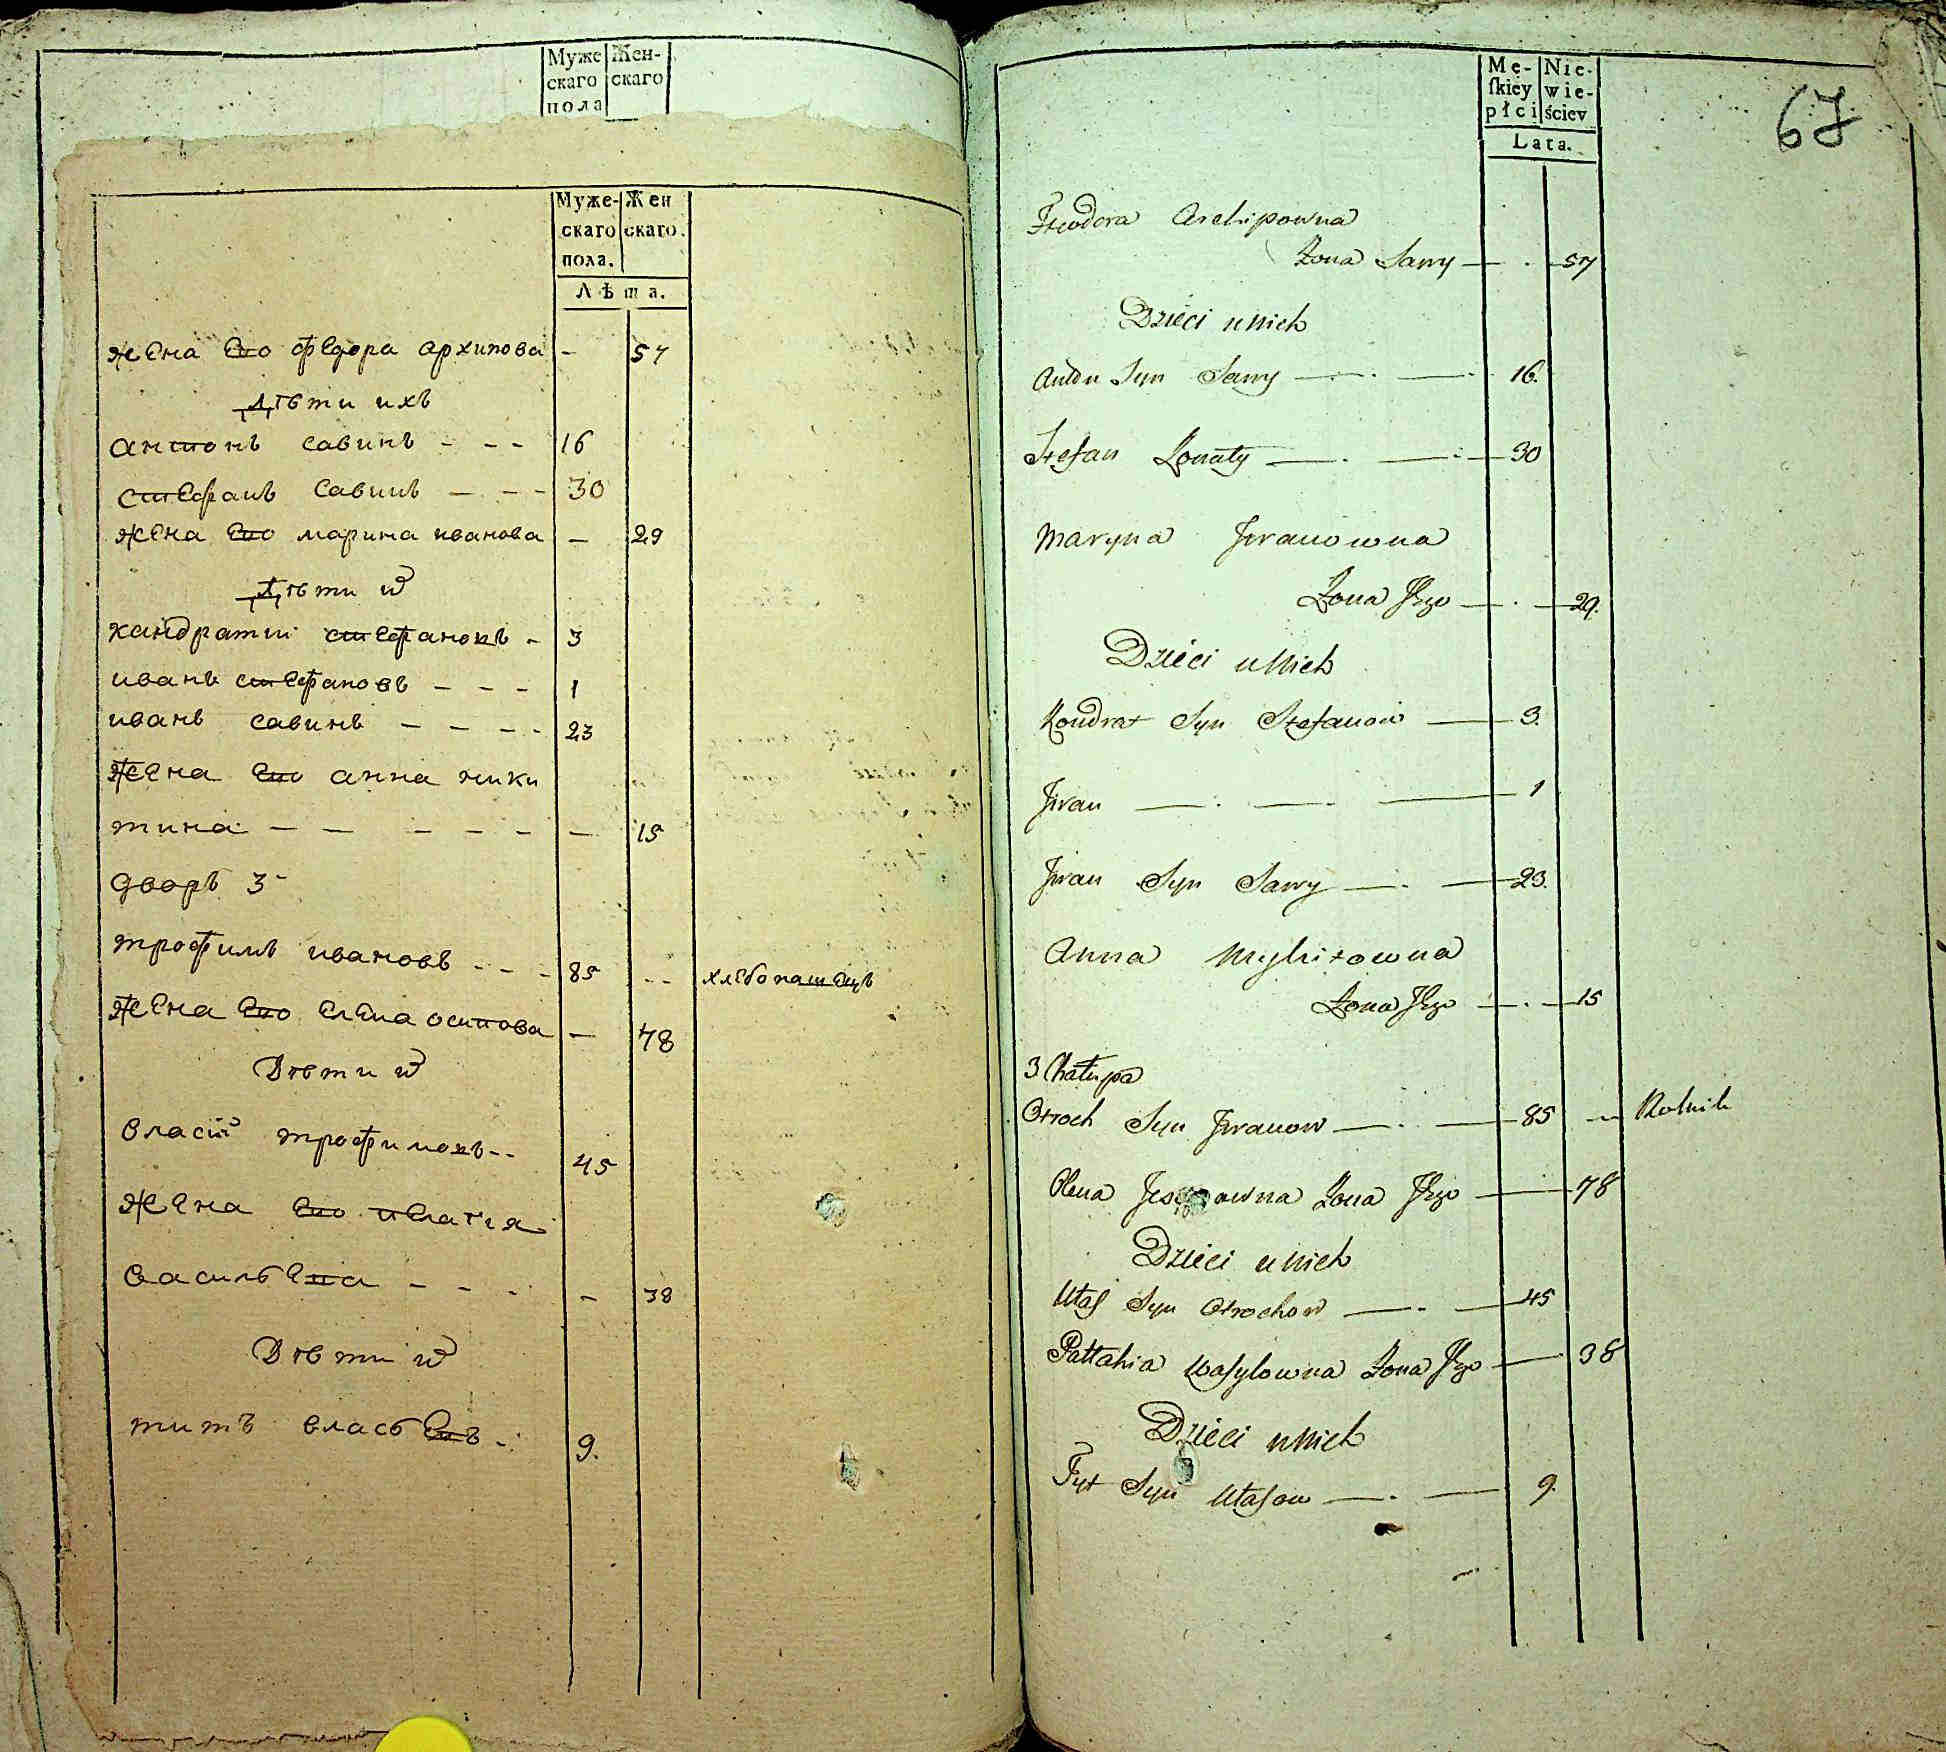 Муже Жен-
скаго скаго
пола
Муже- Жен
скаго скаго.
пола.
Лѣта.
жена его федора архипова - 57
дѣти ихъ
антонъ савинъ - - - 16
стефанъ савинъ - - - 30
жена его марина иванова - 29
дѣти ѿ
кандратий стефановъ - 3
иванъ стефановъ - - - 1
иванъ савинъ - - - - 23
жена его анна ники
тина - - - - - - 15
дворъ 3
трофимъ ивановъ - - - 85 - - хлебопашецъ
жена его елена осипова - 78
Дѣти ѿ
власий трофимовъ - - 45
жена его пелагия
васильева - - - - - 38
Дѣти ѿ
титъ власьевъ - 9.
67
Mę- Nie-
ſkiey wie-
płci ściey
Lata.
Fteodora Archipowna
Żona Sawy — . — 57
Dzieci u Nich
Anton Syn Sawy — . — 16.
Stefan Żonaty — . — 30
Maryna Jwanowna
Żona Jego — . — 29.
Dzieci u Nich
Kondrat Syn Stefanow — 3.
Jwan — . — . — 1
Jwan Syn Sawy — . — 23.
Anna Mykitowna
Żona Jego — . — 15
3 Chałupa
Otroch Syn Jwanow — . — 85 - Rolnik
Olena Jesypowna Żona Jego — 78
Dzieci u Nich
Ułas Syn Otrochow — . — 45
Pałłahia Wasylowna Żona Jego — 38
Dzieci u Nich
Tyt Syn Ułasow — . — 9.